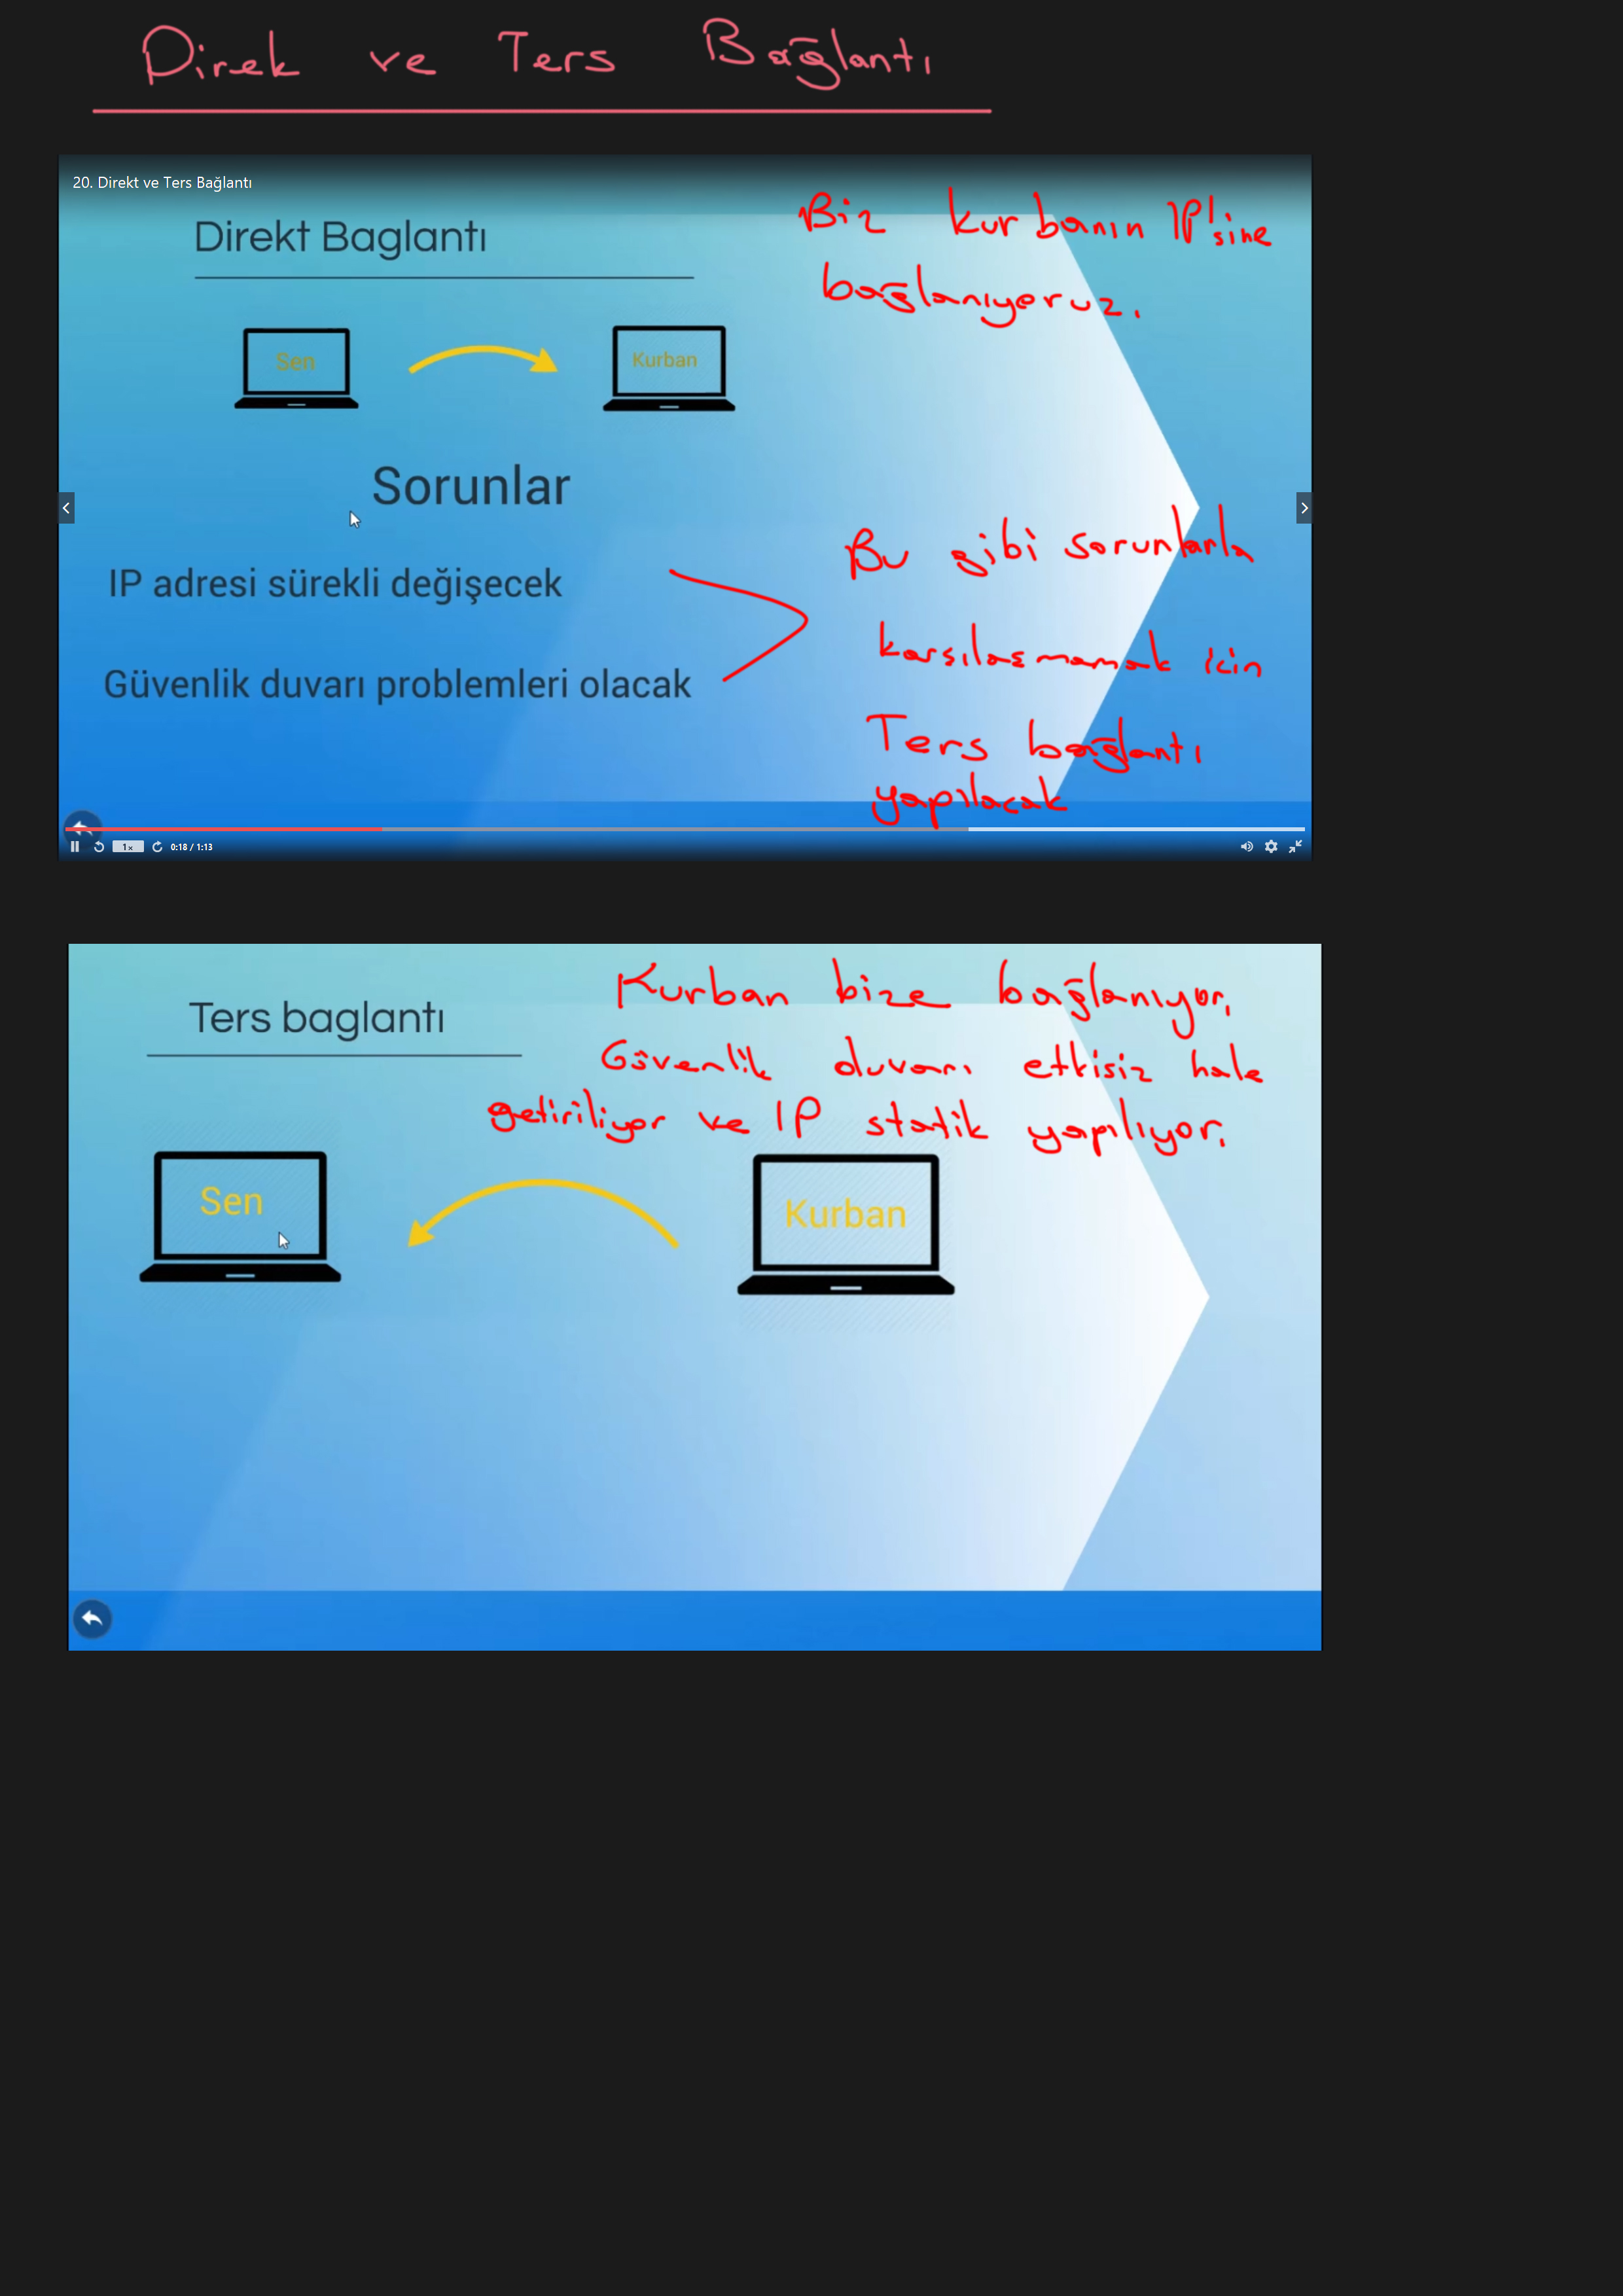 Direk ve Ters Bağlantı
20. Direkt ve Ters Bağlantı
Direkt Baglantı
Biz kurbanın IP'sine
bağlanıyoruz.
Sen
Kurban
Sorunlar
IP adresi sürekli değişecek
Güvenlik duvarı problemleri olacak
Bu gibi sorunlarla
karsılasmamak icin
Ters bağlantı
yapılacak
1x
0:18 / 1:13
Ters baglantı
Kurban bize bağlanıyor.
Güvenlik duvarı etkisiz hale
getiriliyor ve IP statik yapılıyor.
Sen
Kurban